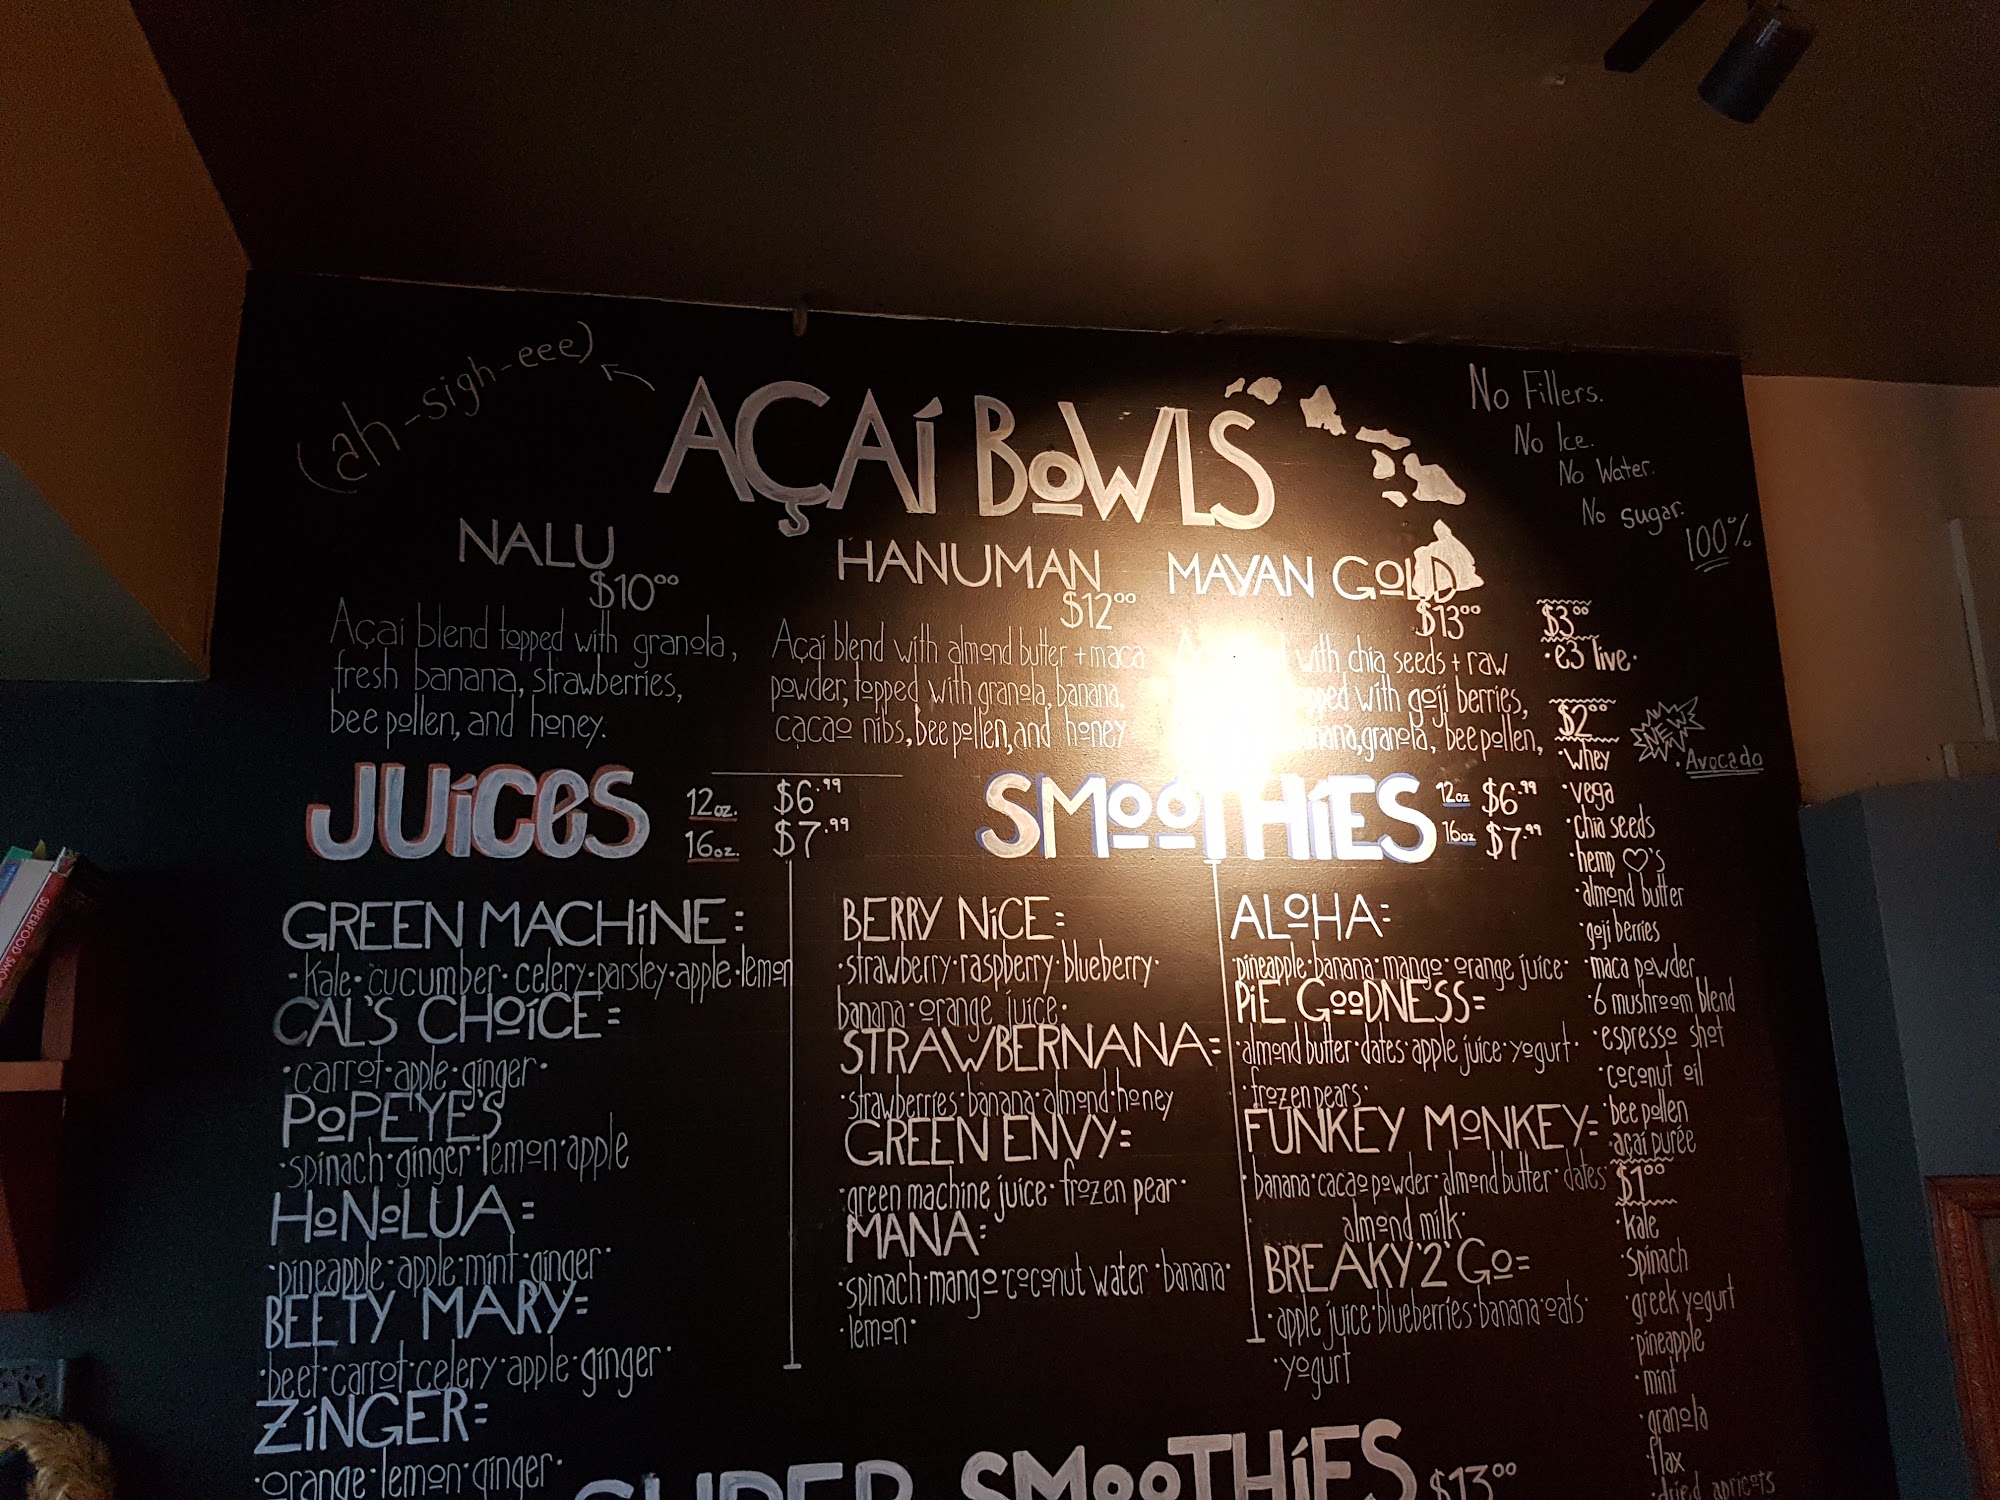 (ah-sigh-eee)
AÇAí BOWLS
No Fillers.
No Ice.
No Water.
No sugar.
100%
NALU
$10⁰⁰
Açai blend topped with granola,
fresh banana, strawberries,
bee pollen, and honey.
HANUMAN
$12⁰⁰
Açai blend with almond butter + maca
powder, topped with granola, banana,
cacao nibs, bee pollen, and honey
MAYAN GOLD
$13⁰⁰
with chia seeds + raw
with goji berries,
granola, bee pollen,
JUíCES
12oz. $6.⁹⁹
16oz. $7.⁹⁹
GREEN MACHíNE=
- Kale · cucumber · celery · parsley · apple · lemon
CAL'S CHOíCE=
· carrot · apple · ginger ·
POPEYE'S
· spinach · ginger · lemon · apple
HONOLUA=
· pineapple · apple · mint · ginger ·
BEETY MARY=
· beet · carrot · celery · apple · ginger ·
ZíNGER=
· orange · lemon · ginger ·
SMOOTHíES
12oz $6.⁹⁹
16oz $7.⁹⁹
BERRY NíCE=
· strawberry · raspberry · blueberry ·
banana · orange juice ·
STRAWBERNANA=
· strawberries · banana · almond · honey
GREEN ENVY=
· green machine juice · frozen pear ·
MANA=
· spinach · mango · coconut water · banana ·
· lemon ·
ALOHA=
· pineapple · banana · mango · orange juice ·
PíE GOODNESS=
· almond butter · dates · apple juice · yogurt ·
· frozen pears ·
FUNKEY MONKEY=
· banana · cacao powder · almond butter · dates ·
almond milk ·
BREAKY '2' GO=
· apple juice · blueberries · banana · oats ·
· yogurt
SUPER SMOOTHíES $13⁰⁰
$3.⁰⁰
· e3 live ·
$2⁰⁰
NEW
· Avocado
· whey
· vega
· chia seeds
· hemp ♡'s
· almond butter
· goji berries
· maca powder
· 6 mushroom blend
· espresso shot
· coconut oil
· bee pollen
· açaí purée
$1⁰⁰
· kale
· spinach
· greek yogurt
· pineapple
· mint
· granola
· flax
· dried apricots